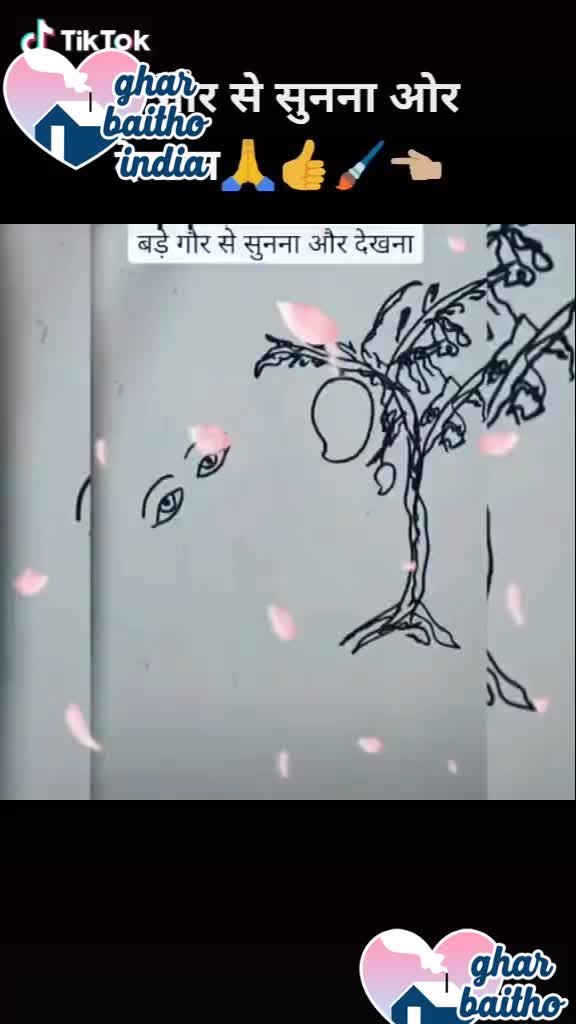 TikTok
ghar
baitho
india
से सुनना ओर
बड़े गौर से सुनना और देखना
ghar
baitho